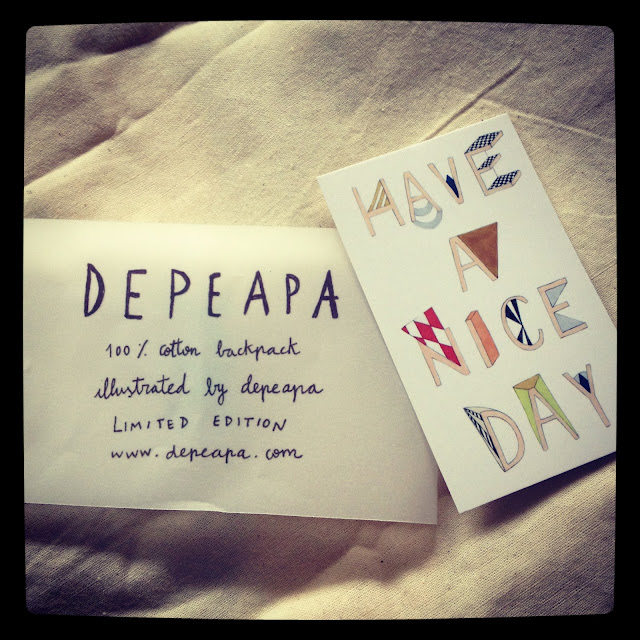 DEPEAPA
100% cotton backpack
illustrated by depeapa
LIMITED EDITION
www.depeapa.com
HAVE
A
NICE
DAY